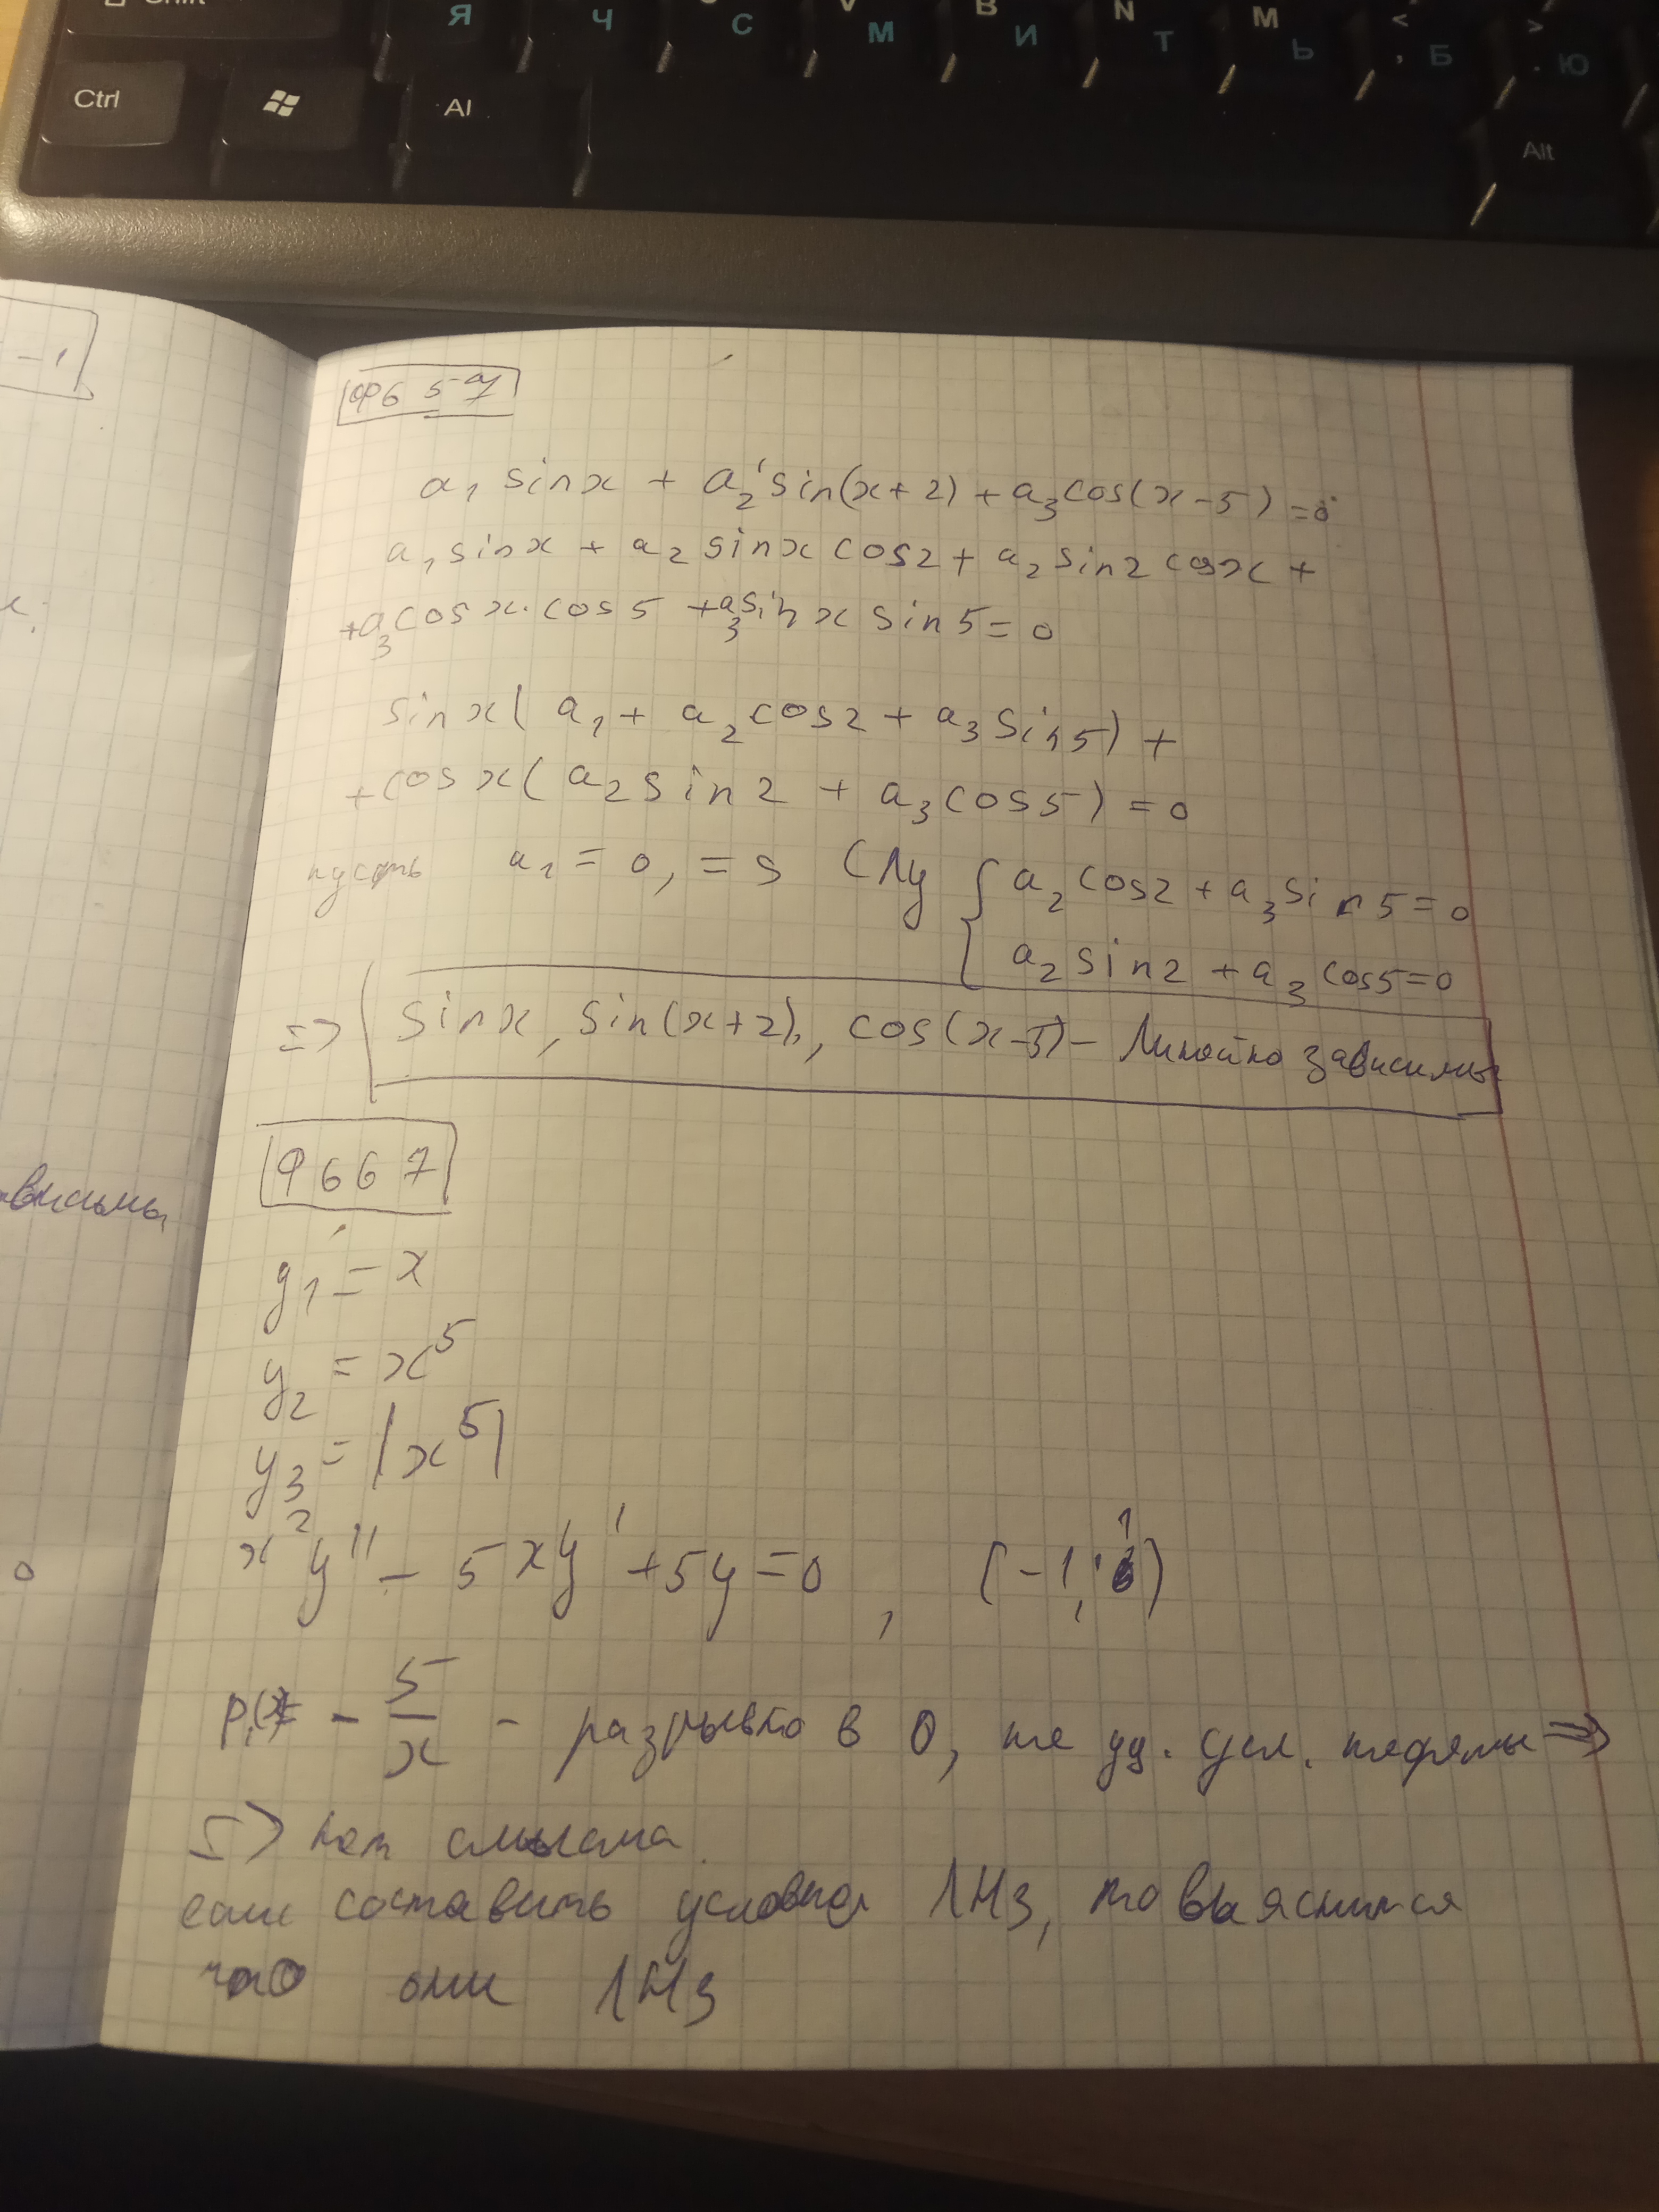 Shift
Я Ч С М И Т Ь Б Ю
V B N M < >
Ctrl Al Alt
-1
Ф6 5
a₁ sinx + a₂ sin(x+2) + a₃cos(x-5) =0
a₁sinx + a₂sinx cos2 + a₂sin2 cosx +
+a₃cosx·cos5 +a₃sinx sin5=0
sinx( a₁ + a₂cos2 + a₃ sin5) +
+cosx( a₂sin2 + a₃cos5) =0
пусть a₁=0, => СЛУ { a₂cos2 + a₃sin5=0
a₂sin2 + a₃cos5=0
=> sinx, sin(x+2), cos(x-5) - Линейно зависимы
ависимы
Ф667
y₁=x
y₂=x⁵
y₃=|x⁵|
x²y'' - 5xy' +5y=0, (-1; 1)
0
p₁(x)= -5/x - разрывно в 0, не уд. усл. теоремы =>
=> нет смысла
если составить условия ЛНЗ, то выяснится
что они ЛНЗ